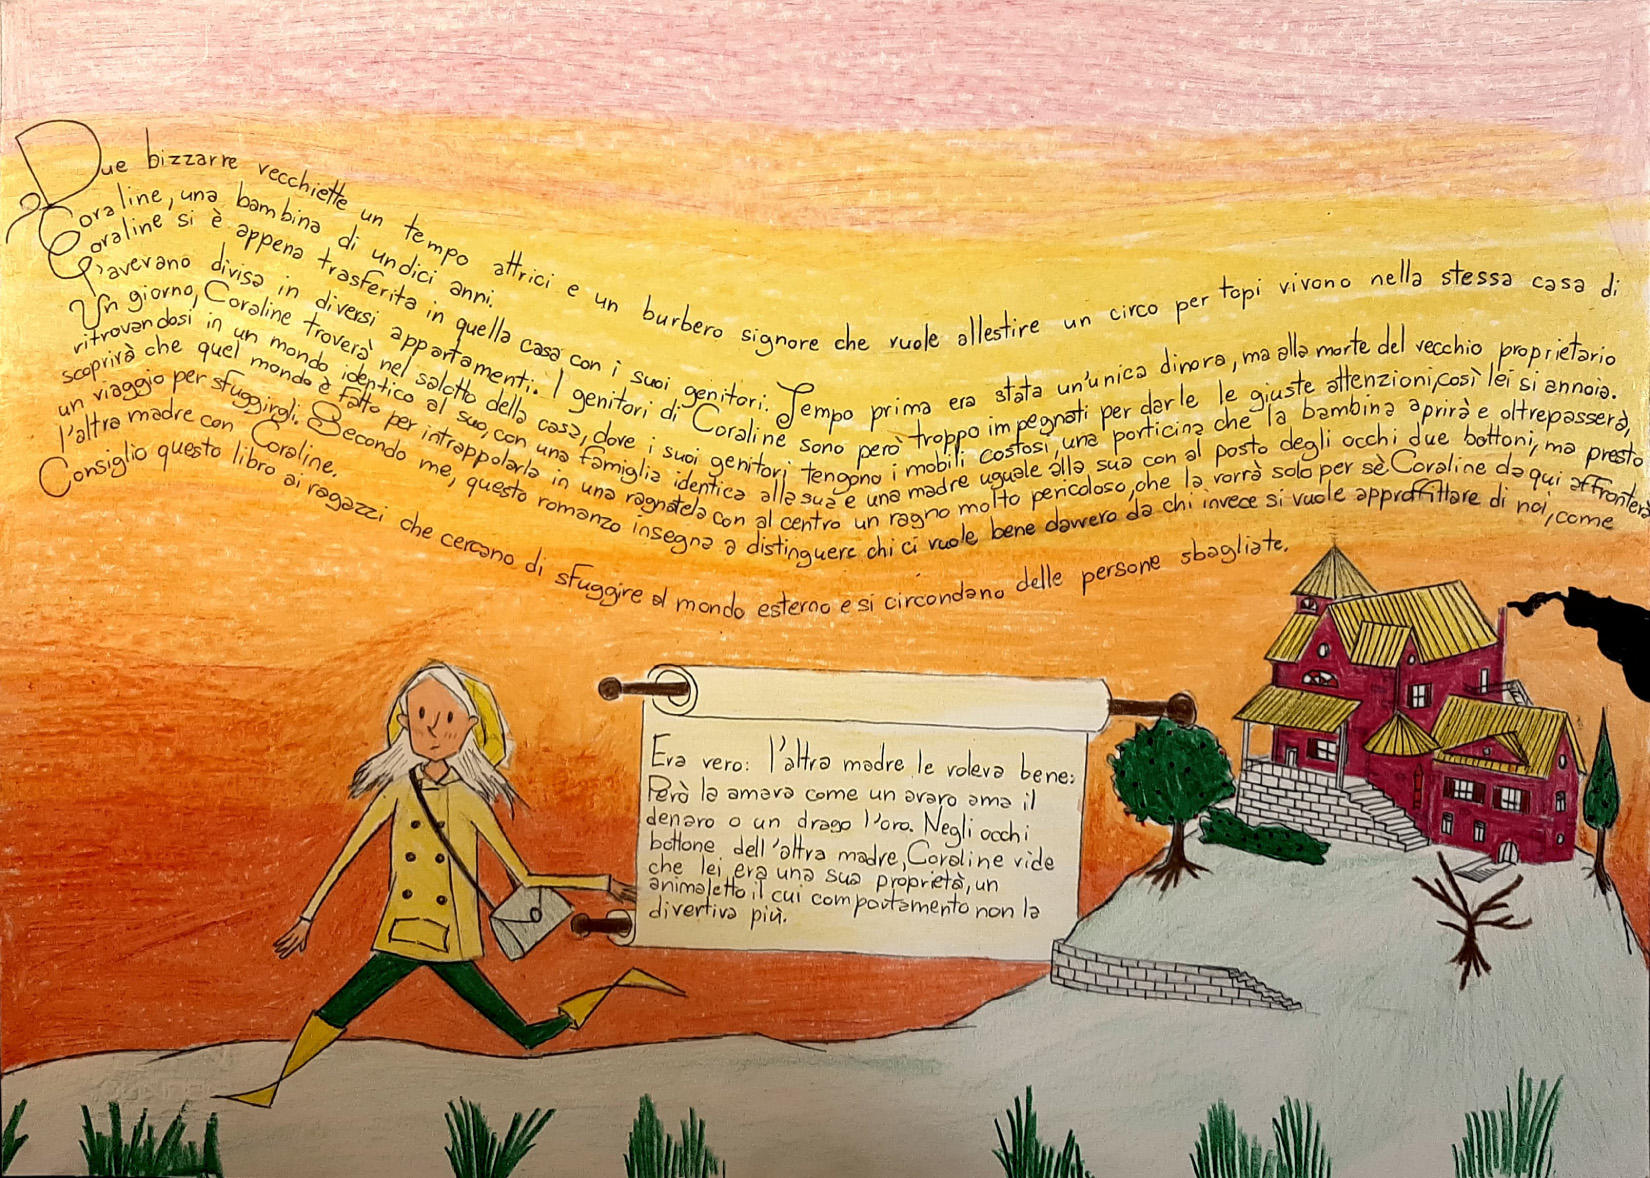 Due bizzarre vecchiette un tempo attrici e un burbero signore che vuole allestire un circo per topi vivono nella stessa casa di
Coraline, una bambina di undici anni.
Coraline si è appena trasferita in quella casa con i suoi genitori. Tempo prima era stata un'unica dinora, ma alla morte del vecchio proprietario
l'avevano divisa in diversi appartamenti. I genitori di Coraline sono però troppo impegnati per darle le giuste attenzioni, così lei si annoia.
Un giorno, Coraline troverà nel salotto della casa, dove i suoi genitori tengono i mobili costosi, una porticina che la bambina aprirà e oltrepasserà,
ritrovandosi in un mondo identico al suo, con una famiglia identica alla sua e una madre uguale alla sua con al posto degli occhi due bottoni, ma presto
scoprirà che quel mondo è fatto per intrappolarla in una ragnatela con al centro un ragno molto pericoloso, che la vorrà solo per sè. Coraline da qui affronterà
un viaggio per sfuggirgli. Secondo me, questo romanzo insegna a distinguere chi ci vuole bene davvero da chi invece si vuole approffittare di noi, come
l'altra madre con Coraline.
Consiglio questo libro ai ragazzi che cercano di sfuggire al mondo esterno e si circondano delle persone sbagliate.
Era vero: l'altra madre le voleva bene:
Però la amava come un avaro ama il
denaro o un drago l'oro. Negli occhi
bottone dell'altra madre, Coraline vide
che lei era una sua proprietà, un
animaletto il cui comportamento non la
divertiva più.